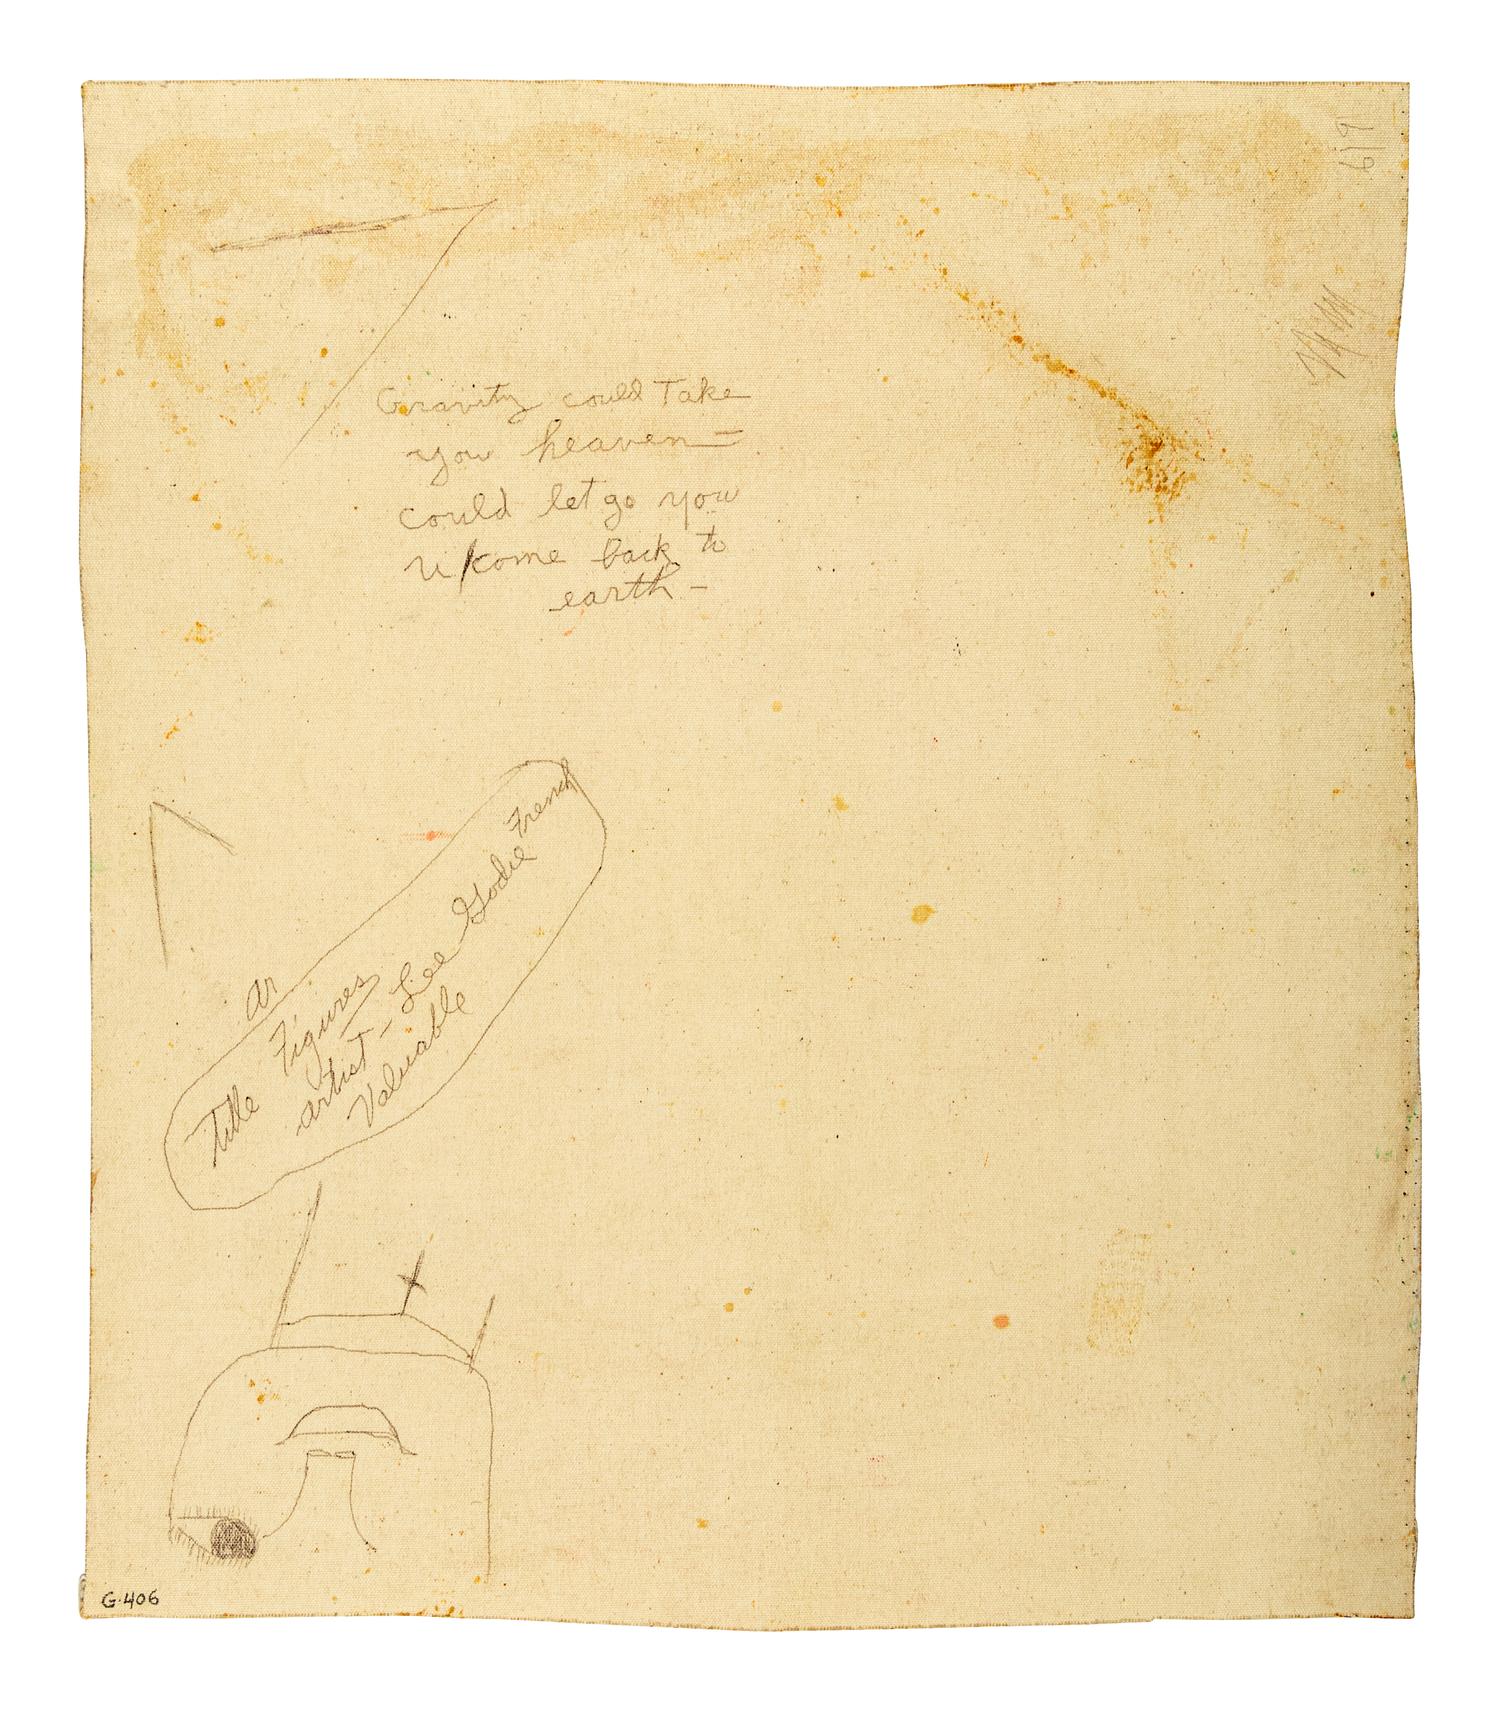 Gravity could Take
you heaven =
could let go you
u / come back to
earth -
ar
Title Figures
artist - Lee Godie French
Valuable
G.406